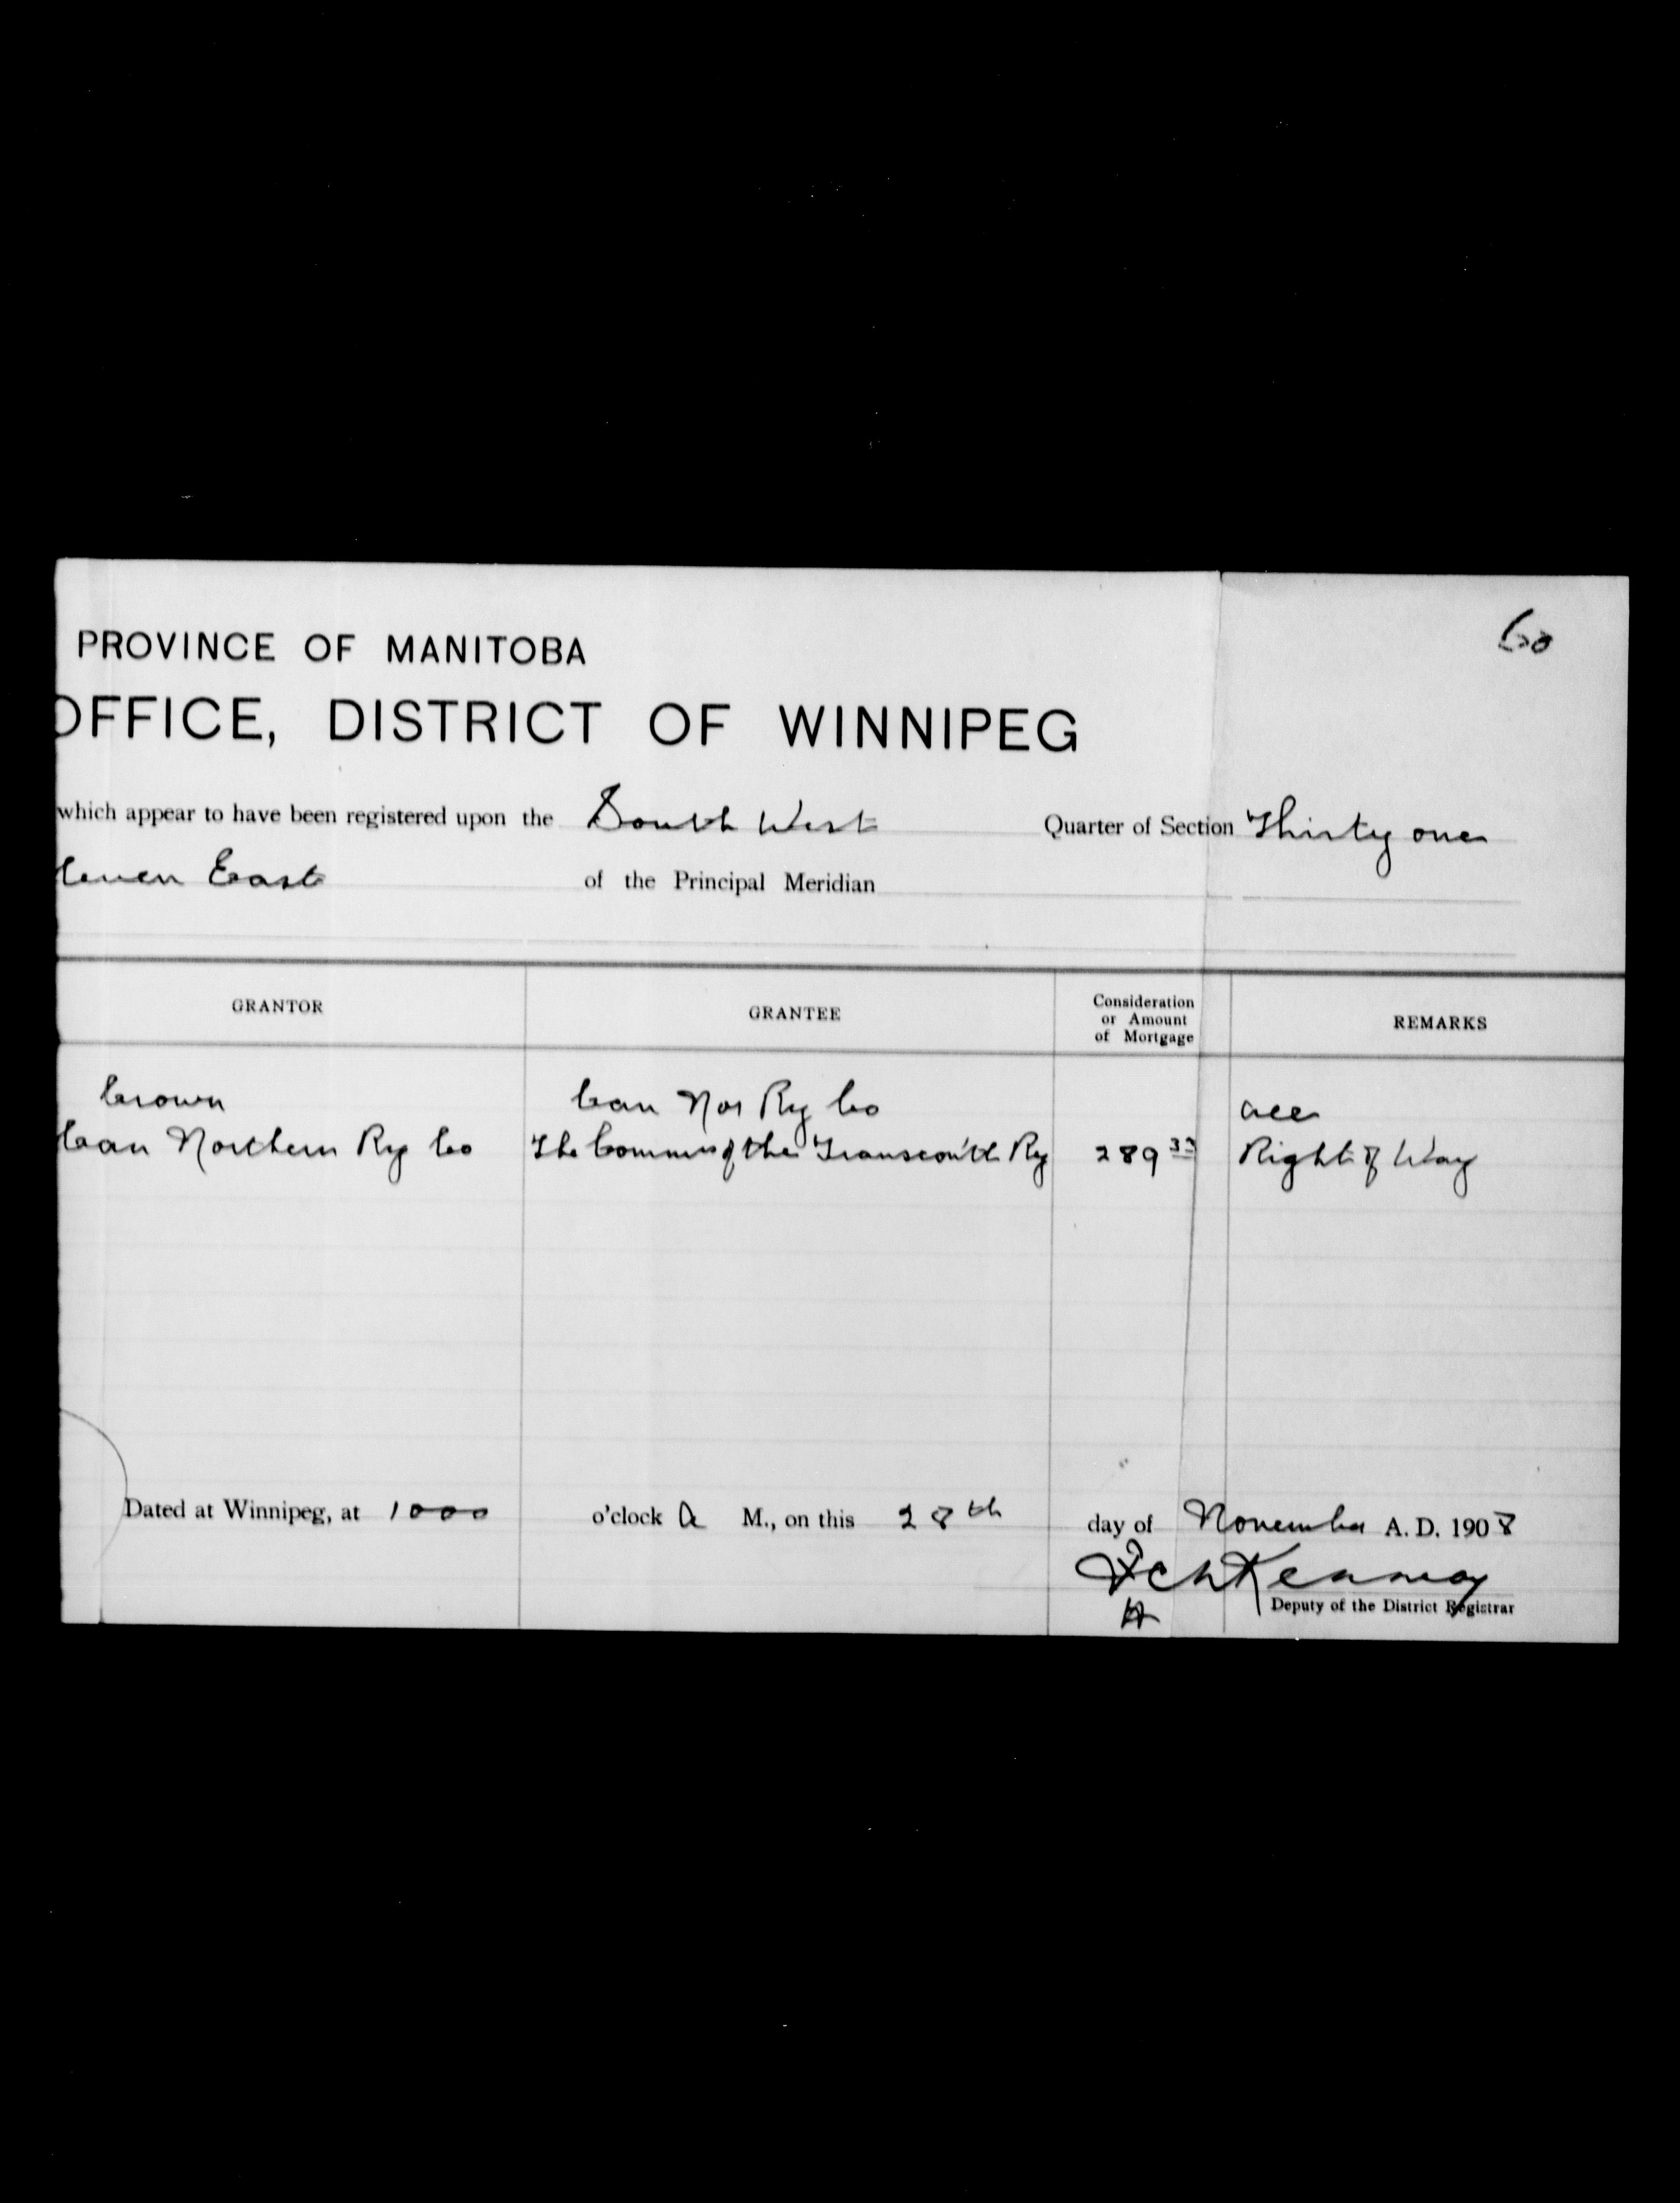 60
PROVINCE OF MANITOBA
OFFICE, DISTRICT OF WINNIPEG
which appear to have been registered upon the South West Quarter of Section Thirty one
leven East of the Principal Meridian
GRANTOR GRANTEE Consideration or Amount of Mortgage REMARKS
Crown Can Nor Ry Co all
Can Northern Ry Co The Commrs of the Transcon'tl Ry 289 33 Right of Way
Dated at Winnipeg, at 1000 o'clock A M., on this 28th day of November A. D. 1908
Deputy of the District Registrar